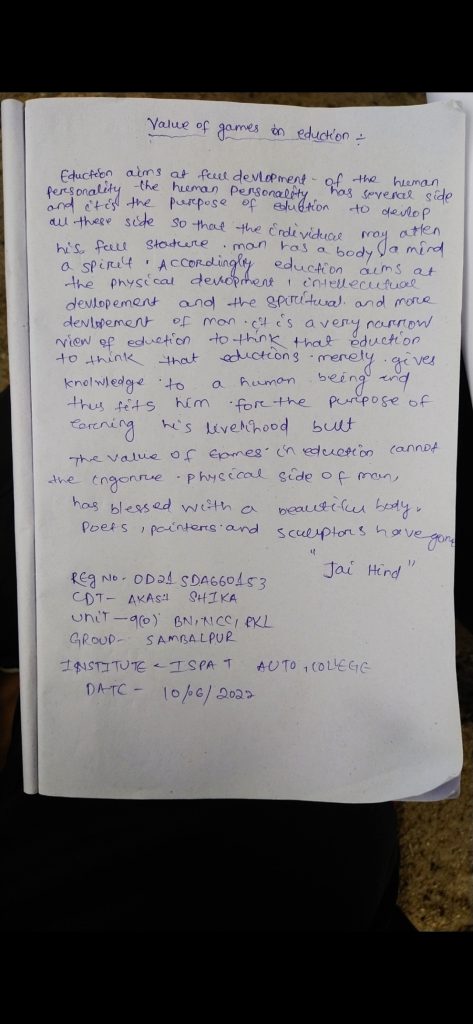 Value of games in eduction :-
Eduction aims at full devlopment- of the human
personality the human personality has several side
and it is the purpose of eduction to devlop
all these side so that the individual may atten
his full stature . man has a body, a mind
a spirit . Accordingly eduction aims at
the physical devlopment , intellecutual
devlopement and the spiritual and more
devlopement of man . it is a very narrow
view of eduction to think that eduction
to think that eductions . merely . gives
knolwledge to a human being and
thus fits him for the purpose of
earning his livelihood but
The value of Games in eduction cannot
the ingonrue . physical side of man,
has blessed with a beautiful body.
Poets , painters and sculptors have gone
" Jai Hind "
Reg No - OD21 SDA660153
CDT- AKASH SHIKA
Unit - 9(O) BN, NCC, RKL
GROUP- SAMBALPUR
INSTITUTE - ISPAT AUTO, COLLEGE
DATE - 10/06/2022